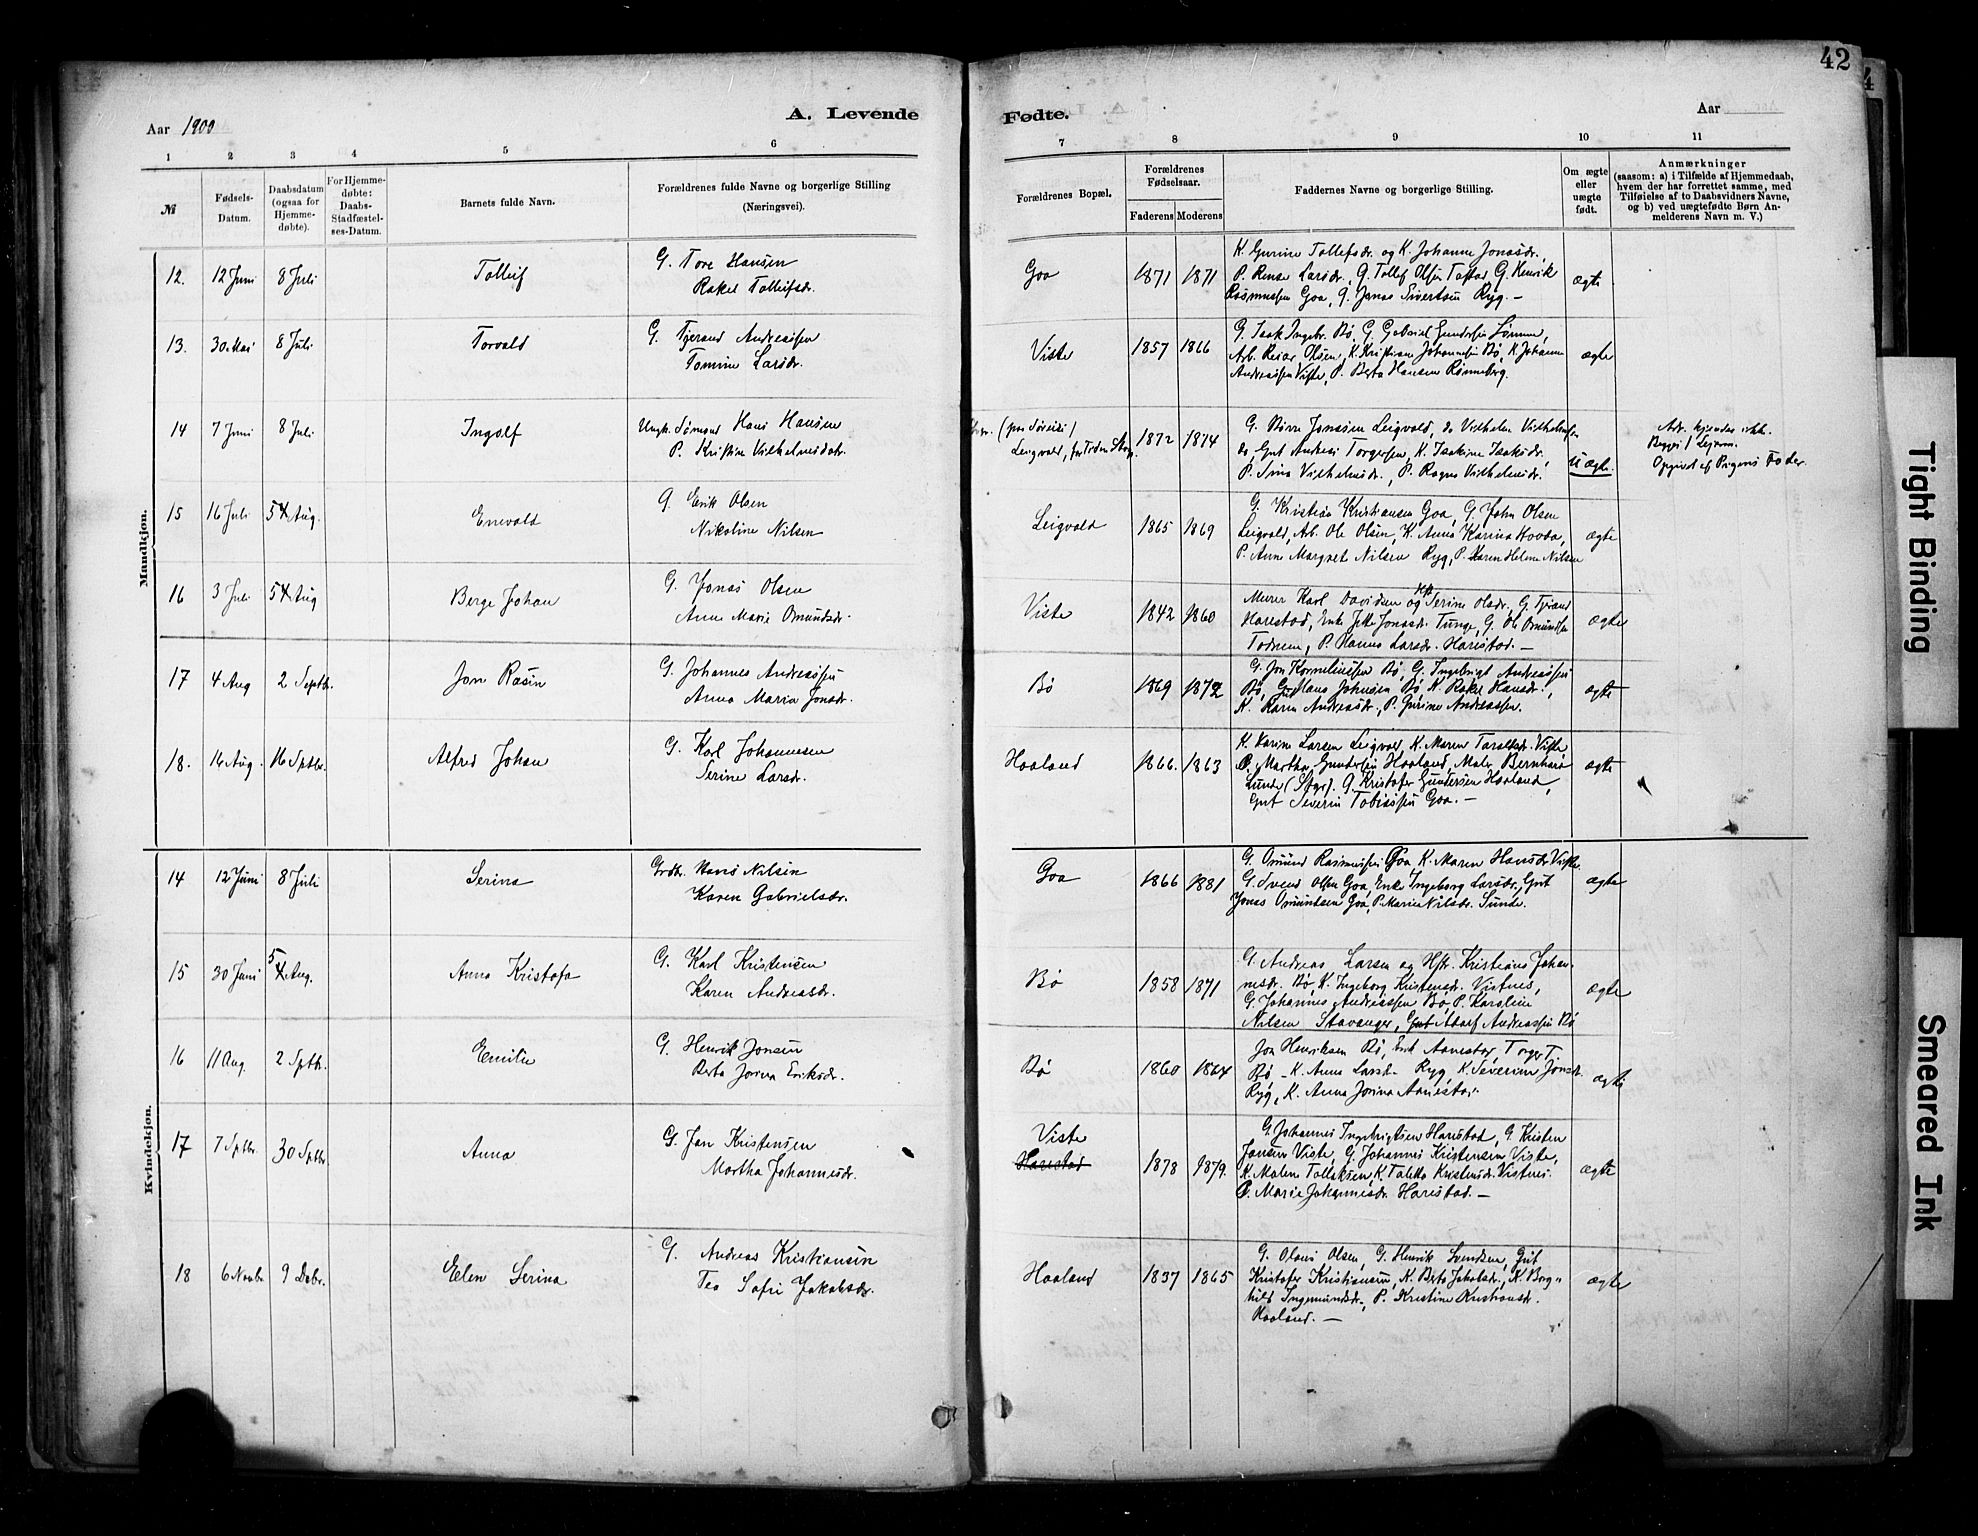 42
Aar 1900
A. Levende
Fødte.
Aar
1 2 3 4 5 6 7 8 9 10 11
№
Fødsels-
Datum.
Daabsdatum
(ogsaa for
Hjemme-
døbte).
For Hjemme-
døbte:
Daabs-
Stadfæstel-
ses-Datum.
Barnets fulde Navn.
Forældrenes fulde Navne og borgerlige Stilling
(Næringsvei).
Forældrenes Bopæl.
Forældrenes
Fødselsaar.
Faderens Moderens
Faddernes Navne og borgerlige Stilling.
Om ægte
eller
uægte
født.
Anmærkninger
(saasom: a) i Tilfælde af Hjemmedaab,
hvem der har forrettet samme, med
Tilføielse af to Daabsvidners Navne,
og b) ved uægtefødte Børn An-
melderens Navn m. V.)
Mandkjøn.
12. 12 Juni 8 Juli Tolleif
G. Tore Hansen
Rakel Tolleifsdr.
Goa 1871 1871
K. Gurine Tollefsdr. og K. Johanne Jonasdr.,
P. Larsdr., G. Tollef Olsen G. Henrik
Rasmussen Goa, G. Jonas Sivertsen Ryg. –
ægte
13. 30 Mai 8 Juli Torvald
G. Tjerand Andreassen
Tomine Larsdr.
Viste 1857 1866
G. Isak Ingebr. Bø, G. Gabriel Gundersen
Arb. Reiar Olsen, K. Kristiane Johannesen Bø, K. Johanne
Andreassen Viste, P. Berta Hansen Rønneberg.
ægte
14 7 Juni 8 Juli Ingolf
Ungk. Sømand Hans Hansen
P. Kristine Vilhelmsdatr.
Leigvold,
1872 1874
G. Børre Jonassen Leigvold, do Vilhelm Vilhelmsen
do, Gut Andreas Torgersen, K. Isakine Isaksdr.,
P. Sina Vilhelmsdr., P. Ragna Vilhelmsdr.
Uægte.
Adr. kjendes ikke.
Opgivet af Pigens Fader.
15 16 Juli 5 Aug. Enevald
G. Erik Olsen
Nikoline Nilsen
Leigvold 1865 1869
G. Kristian Kristiansen Goa, G. John Olsen
Leigvold, Arb. Ole Olsen, K. Anna Karina Hovda,
P. Anne Margret Nilsen Ryg, P. Karen Helene Nilsen
ægte
16 3 Juli 5 Aug Berge Johan
G. Jonas Olsen
Anne Marie Omundsdr.
Viste 1842 1860
Murer Karl Davidsen og Hst. Serine Olsdr., G. Tjerand
Harestad, Enke Jonasdr. Tunge, G. Ole Omundsen
Todnem, P. Hanna Larsdr. Harestad. –
ægte
17 4 Aug 2 Septb. Jon Rasin
G. Johannes Andreassen
Anna Maria Jonsdr.
Bø 1869 1872
G. Jon Korneliussen Bø, G. Ingebrigt Andreassen
Bø, Gut Hans Johnsen Bø, K. Rakel Hansdr.,
K. Karen Andreasdr., P. Gurine Andreassen.
ægte
18. 14 Aug. 16 Sptbr. Alfred Johan
G. Karl Johannesen
Serine Larsdr.
Haaland 1866. 1863
K. Karine Larsen Leigvold, K. Maren Taraldsdr. Viste
P. Martha Gundersen Haaland, Maler Bernhard
Sunde (Stgr). G. Kristofer Gundersen Haaland,
Gut Severin Tobiassen Goa. –
ægte
Kvindekjøn.
14 12 Juni 8 Juli Serina
Grdbr. Hans Nilsen
Karen Gabrielsdr.
Goa 1866 1881
G. Omund Rasmussen Goa K. Maren Hansdr. Viste
G. Svend Olsen Goa, Enke Ingeborg Larsdr., Gut
Jonas Omundsen Goa, P. Marie Nilsdr. Sunde.
ægte
15 30 Juni 5 Aug. Anna Kristofa
G. Karl Kristensen
Karen Andreasdr.
Bø 1858 1871
G. Andreas Larsen og Hstr. Kristiane Johan-
nesdr. Bø, K. Ingeborg Kristensdr. Vistnes,
G. Johannes Andreassen Bø, P. Karoline
Nilsen Stavanger, Gut Adolf Andreassen Bø
ægte
16 11 Aug. 2 Sptb. Emilie
G. Henrik Jonsen
Berta Jorina Eriksdr.
Bø 1860 1864
Jon Henriksen Bø, Erik Aanestad, Torger T.
Bø – K. Anna Larsdr. Ryg, K. Severine Jonsdr.
Ryg, K. Anna Jorina Aanestad.
ægte
17 7 Sptbr. 30 Sptbr Anna
G. Jan Kristensen
Martha Johannesdr.
Viste
Harestad
1878 1879.
G. Johannes Ingebrigtsen Harestad, G. Kristen
Jansen Viste, G. Johannes Kristensen Viste,
K. Malene Tollaksen, K. Taletta Kristensdr. Vistnes.
P. Marie Johannesdr. Harestad. –
ægte
18 6 Novbr 9 Debr. Elen Serina
G. Andreas Kristiansen
Tea Sofie Jakobsdr.
Haaland 1837 1865
G. Olaus Olsen, G. Henrik Svendsen, Gut
Kristofer Kristiansen, K. Berta Jakobsdr., K. Borg-
hild Ingemundsdr., P. Kristine Kristiansdr.
Haaland. –
ægte
Tight Binding
Smeared Ink